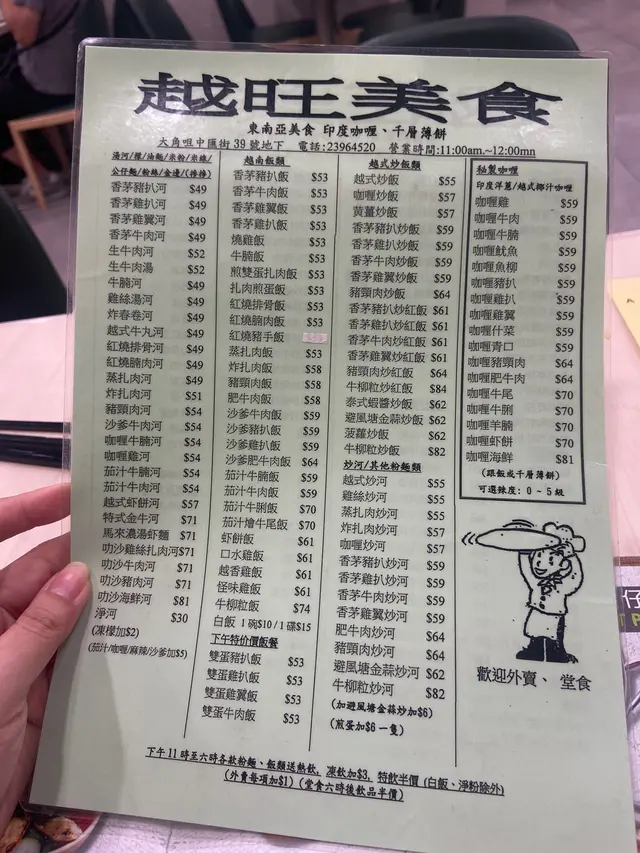 越旺美食
東南亞美食 印度咖喱、千層薄餅
大角咀中匯街39號地下 電話:23964520 營業時間:11:00am.~12:00mn
湯河/檬/油麵/米粉/米線/
公仔麵/粉絲/金邊/(撈撈)
香茅豬扒河 $49
香茅雞扒河 $49
香茅雞翼河 $49
香茅牛肉河 $49
生牛肉河 $52
生牛肉湯 $52
牛腩河 $49
雞絲湯河 $49
炸春卷河 $49
越式牛丸河 $49
紅燒排骨河 $49
紅燒腩肉河 $49
蒸扎肉河 $49
炸扎肉河 $51
豬頸肉河 $54
沙爹牛肉河 $54
咖喱牛腩河 $54
咖喱雞河 $54
茄汁牛腩河 $54
茄汁牛肉河 $54
越式蝦餅河 $57
特式金牛河 $71
馬來濃湯蝦麵 $71
叻沙雞絲扎肉河 $71
叻沙牛肉河 $71
叻沙豬肉河 $71
叻沙海鮮河 $81
淨河 $30
(凍檬加$2)
(茄汁/咖喱/麻辣/沙爹加$5)
越南飯類
香茅豬扒飯 $53
香茅牛肉飯 $53
香茅雞翼飯 $53
香茅雞扒飯 $53
燒雞飯 $53
牛腩飯 $53
煎雙蛋扎肉飯 $53
扎肉煎蛋飯 $53
紅燒排骨飯 $53
紅燒腩肉飯 $53
紅燒豬手飯
蒸扎肉飯 $53
炸扎肉飯 $58
豬頸肉飯 $58
肥牛肉飯 $58
沙爹牛肉飯 $59
沙爹豬扒飯 $59
沙爹雞扒飯 $59
沙爹肥牛肉飯 $64
茄汁牛腩飯 $59
茄汁牛肉飯 $59
茄汁牛脷飯 $70
茄汁燴牛尾飯 $70
蝦餅飯 $61
口水雞飯 $61
越香雞飯 $61
怪味雞飯 $61
牛柳粒飯 $74
白飯 1碗$10/1碟$15
下午特价價飯餐
雙蛋豬扒飯 $53
雙蛋雞扒飯 $53
雙蛋雞翼飯 $53
雙蛋牛肉飯 $53
越式炒飯類
越式炒飯 $55
咖喱炒飯 $57
黃薑炒飯 $57
香茅豬扒炒飯 $59
香茅雞扒炒飯 $59
香茅牛肉炒飯 $59
香茅雞翼炒飯 $59
豬頸肉炒飯 $64
香茅豬扒炒紅飯 $61
香茅雞扒炒紅飯 $61
香茅牛肉炒紅飯 $61
香茅雞翼炒紅飯 $61
豬頸肉炒紅飯 $64
牛柳粒炒紅飯 $84
泰式蝦醬炒飯 $62
避風塘金蒜炒飯 $62
菠蘿炒飯 $62
牛柳粒炒飯 $82
炒河/其他粉麵類
越式炒河 $55
雞絲炒河 $55
蒸扎肉炒河 $55
炸扎肉炒河 $57
咖喱炒河 $57
香茅豬扒炒河 $59
香茅雞扒炒河 $59
香茅牛肉炒河 $59
香茅雞翼炒河 $59
肥牛肉炒河 $64
豬頸肉炒河 $64
避風塘金蒜炒河 $62
牛柳粒炒河 $82
(加避風塘金蒜炒加$6)
(煎蛋加$6一隻)
秘製咖喱
印度洋蔥/越式椰汁咖喱
咖喱雞 $59
咖喱牛肉 $59
咖喱牛腩 $59
咖喱魷魚 $59
咖喱魚柳 $59
咖喱豬扒 $59
咖喱雞扒 $59
咖喱雞翼 $59
咖喱什菜 $59
咖喱青口 $59
咖喱豬頸肉 $64
咖喱肥牛肉 $64
咖喱牛尾 $70
咖喱牛脷 $70
咖喱羊腩 $70
咖喱蝦餅 $70
咖喱海鮮 $81
(跟飯或千層薄餅)
可選辣度: 0~5級
歡迎外賣、堂食
下午11時至六時各款粉麵、飯類送熱飲, 凍飲加$3, 特飲半價 (白飯、淨粉除外)
(外賣每項加$1) (堂食六時後飲品半價)
仔